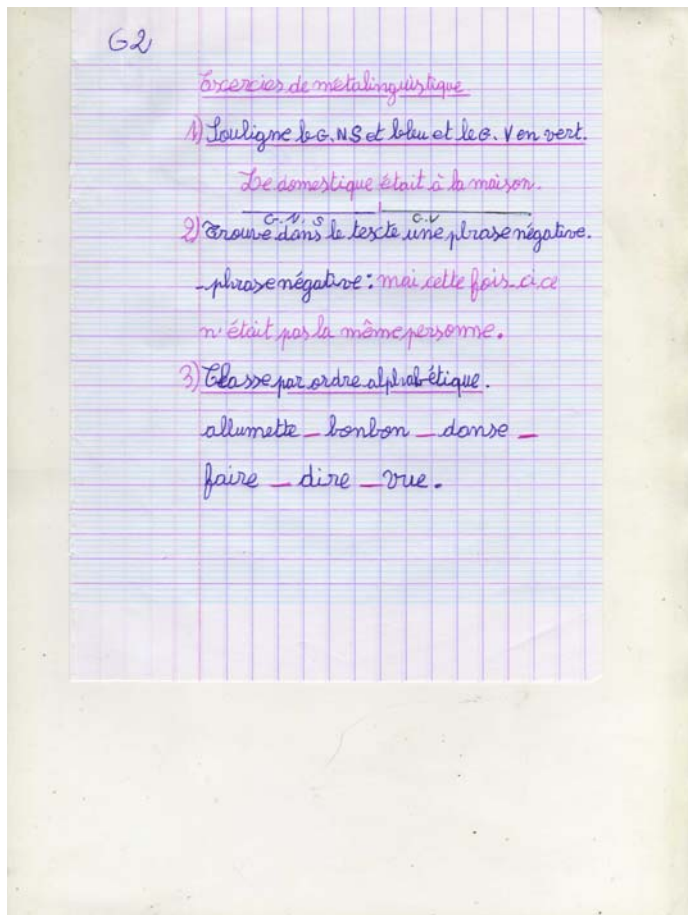 G2
Excercies de métalinguistique
1) Souligne le G. N S et bleu et le G. V en vert.
Le domestique était à la maison.
G. N. S G.V
2) Trouve dans le texcte une phrase négative.
- phrase négative : mai cette fois-ci, ce
n'était pas la même personne.
3) Classe par ordre alphabétique.
allumette _ bonbon _ danse _
faire _ dire _ vue.